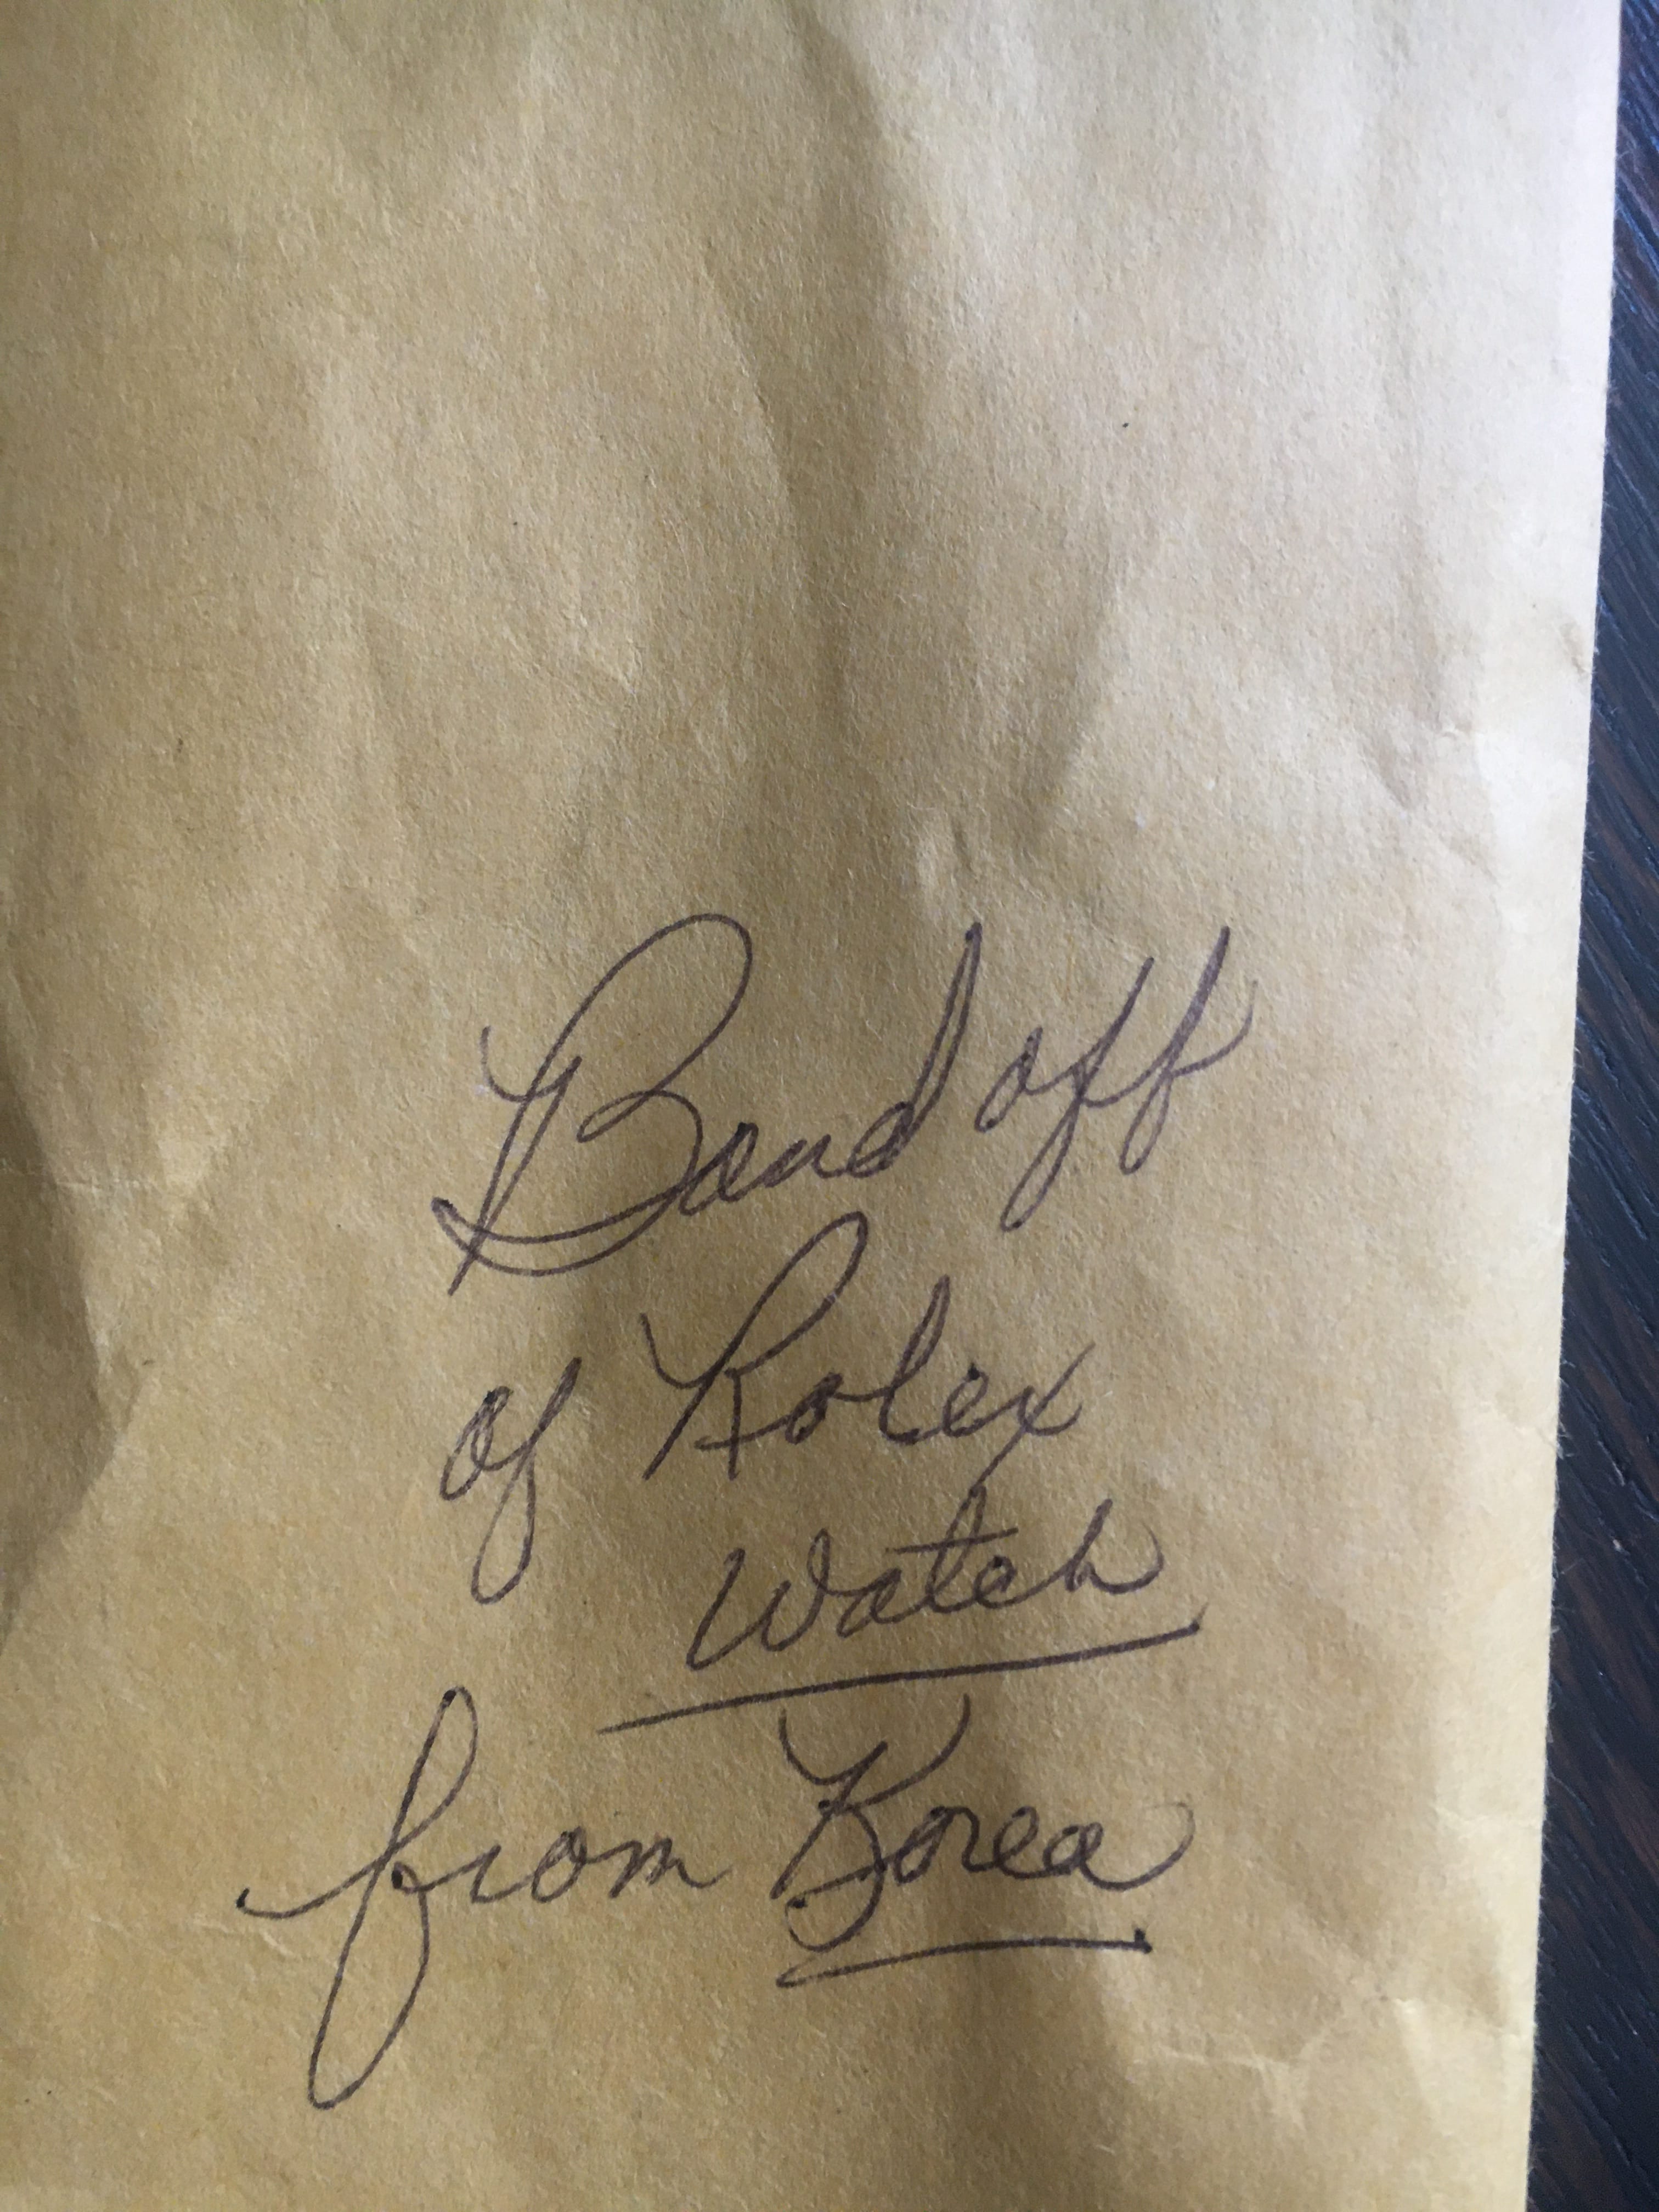 Band off
of Rolex
watch
from Korea